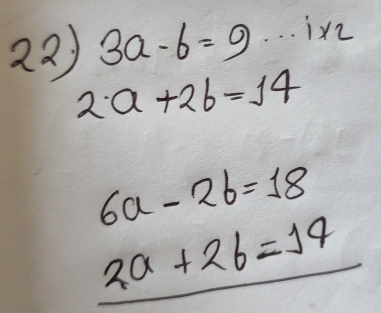 22) 3a-b=9 ...i×2
2·a+2b=14
6a-2b=18
2a+2b=14